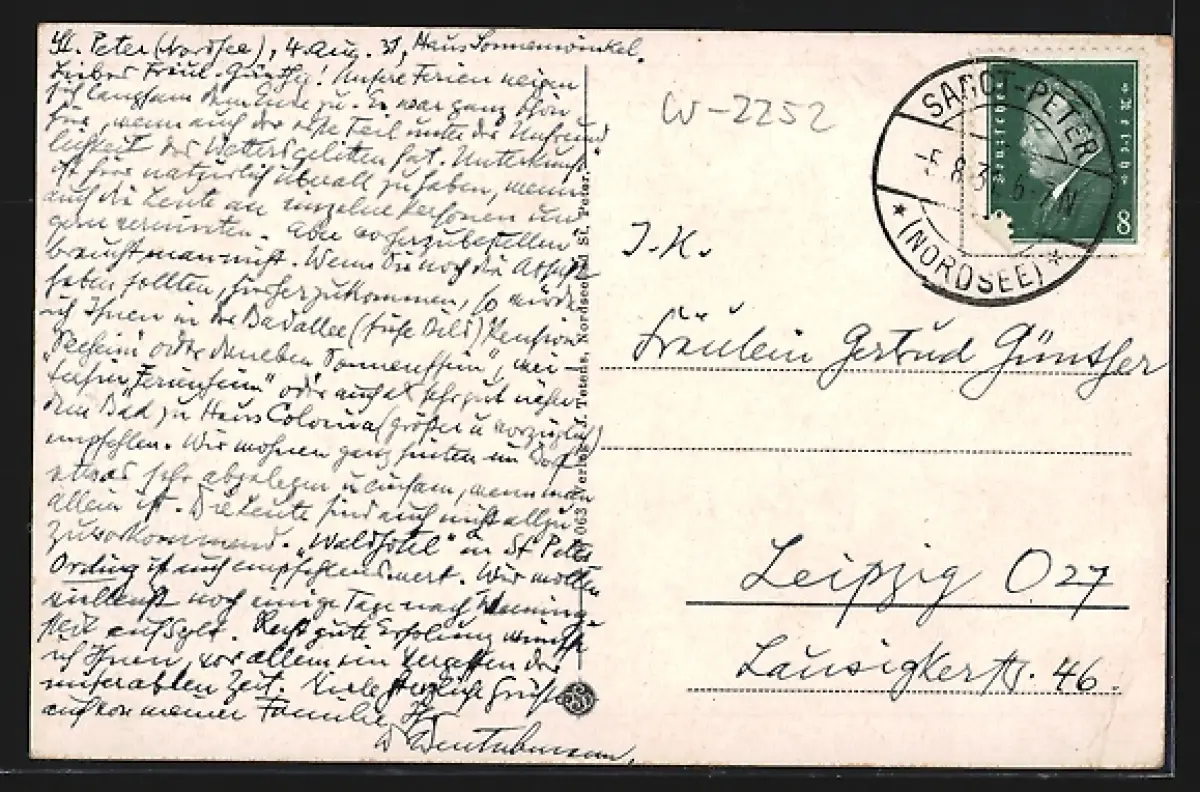 St. Peter (Nordsee), 4. Aug. 31, Haus Sonnenwinkel.
Liebes Fräul. Günther! Unsere Ferien neigen
sich langsam dem Ende zu. Es war ganz schön
hier, wenn auch der erste Teil unter der Unfreund
lichkeit des Wetters gelitten hat. Unterkunft
ist hier natürlich überall zu haben, wenn
auch die Leute an einzelne Personen un
gern vermieten. Aber vorherzubestellen
braucht man nicht. Wenn Sie noch die Absicht
haben sollten, hierherzukommen, so würde
ich Ihnen in der Badallee (siehe Bild) Pension
"Seeheim" oder daneben "Sonnenschein",
"Ferienheim" oder auch als sehr gut näher
dem Bad zu Haus Colonia (größer u vorzüglich)
empfehlen. Wir wohnen ganz hinten im Dorf
etwas sehr abgelegen u einsam, wenn man
allein ist. Die Leute sind auch nicht allzu
zuvorkommend. "Waldhotel" in St Peter
Ording ist auch empfehlenswert. Wir wollen
vielleicht noch einige Tage nach
. Recht gute Erholung wünsche
ich Ihnen, vor allem ein Vergessen der
miserablen Zeit. Viele herzliche Grüße
auch von meiner Familie Ihr
063 Verlag J. Tetens, Nordseebad St. Peter.
W-2252
SANCT-PETER
-5.8.3 6-7N
* (NORDSEE) *
Deutsches Reich
8
I. H.
Fräulein Gertrud Günther
Leipzig O 27
Lausigkerstr. 46.